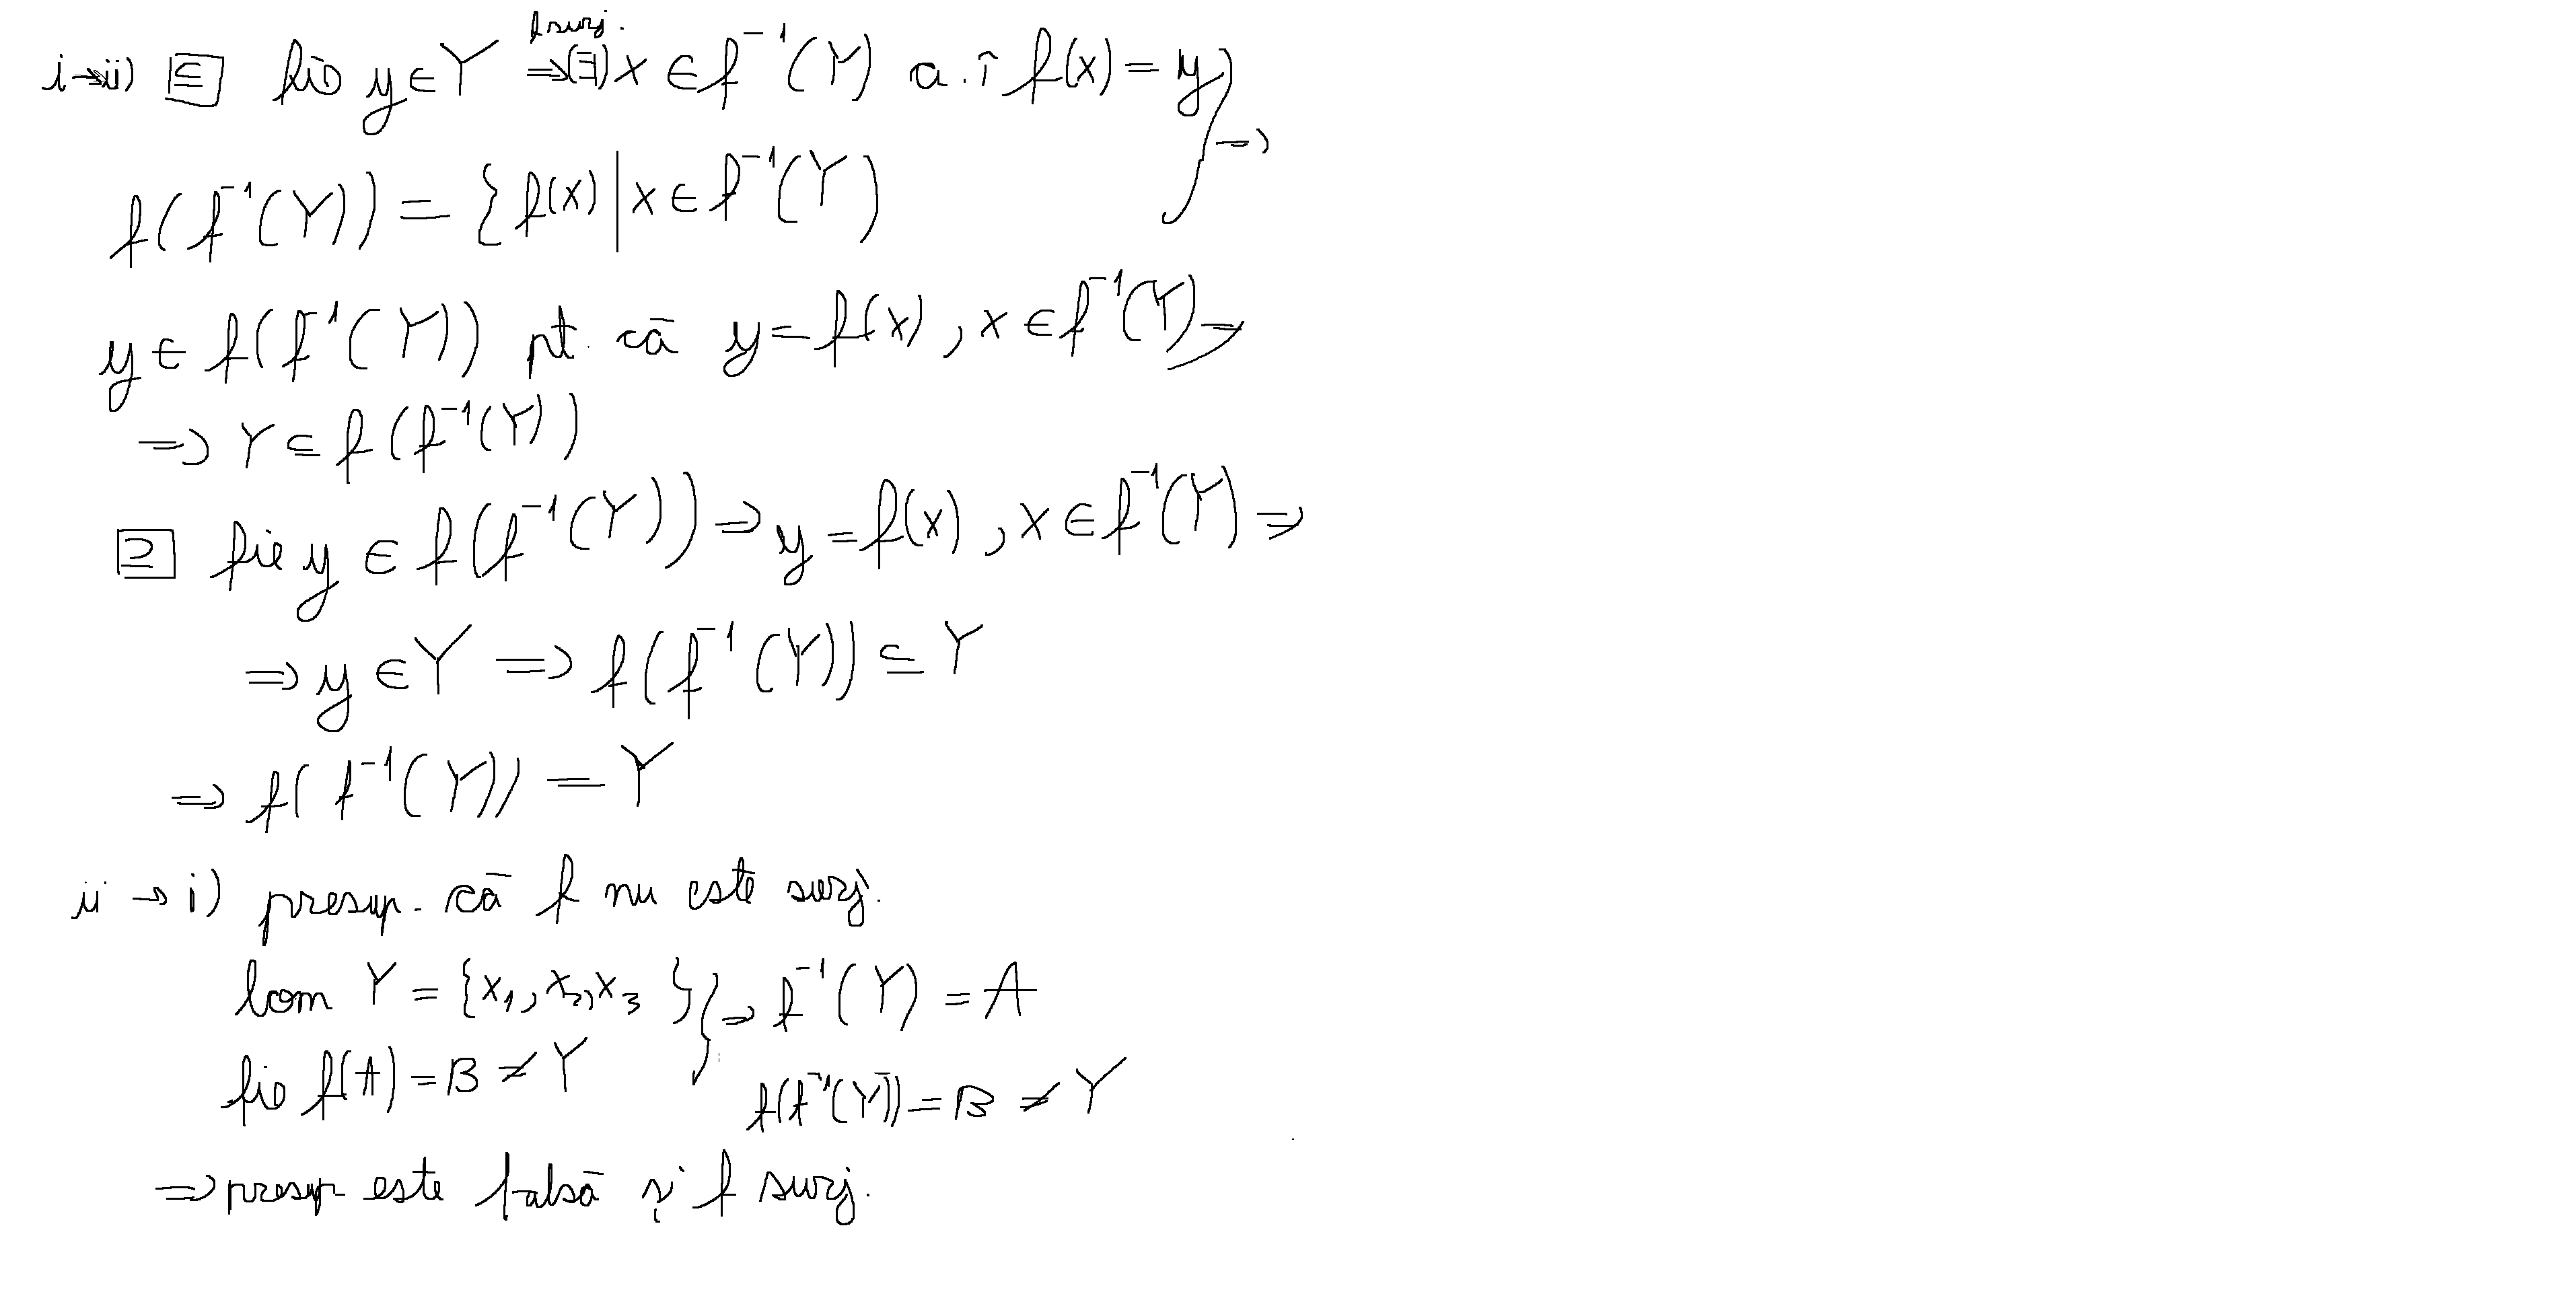 f surj.
i→ii) ⊆ fie y ∈ Y ⇒ (∃) x ∈ f⁻¹(Y) a.î f(x) = y } ⇒
f(f⁻¹(Y)) = {f(x) | x ∈ f⁻¹(Y)
y ∈ f(f⁻¹(Y)) pt. că y = f(x), x ∈ f⁻¹(Y) ⇒
⇒ Y ⊆ f(f⁻¹(Y))
⊇ fie y ∈ f(f⁻¹(Y)) ⇒ y = f(x), x ∈ f⁻¹(Y) ⇒
⇒ y ∈ Y ⇒ f(f⁻¹(Y)) ⊆ Y
⇒ f(f⁻¹(Y)) = Y
ii → i) presup. că f nu este surj.
lom Y = {x₁, x₂, x₃ } } ⇒ f⁻¹(Y) = A
fie f(A) = B ≠ Y f(f⁻¹(Y)) = B ≠ Y
⇒ presup este falsă și f surj.